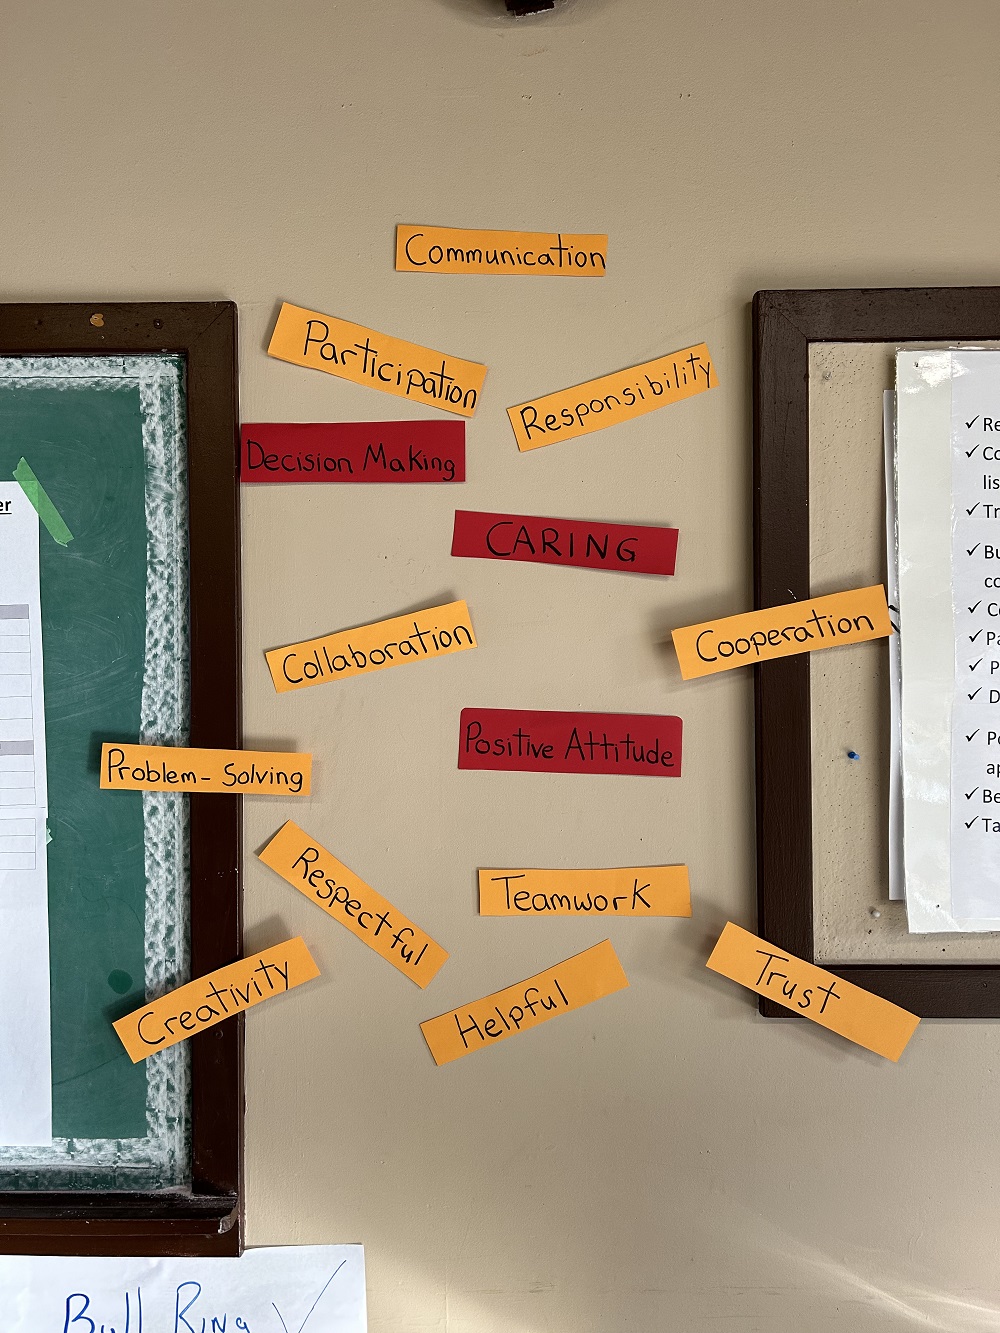 Communication
Participation
Responsibility
Decision Making
CARING
Collaboration
Cooperation
Positive Attitude
Problem-Solving
Respectful
Teamwork
Creativity
Helpful
Trust
Bull Ring